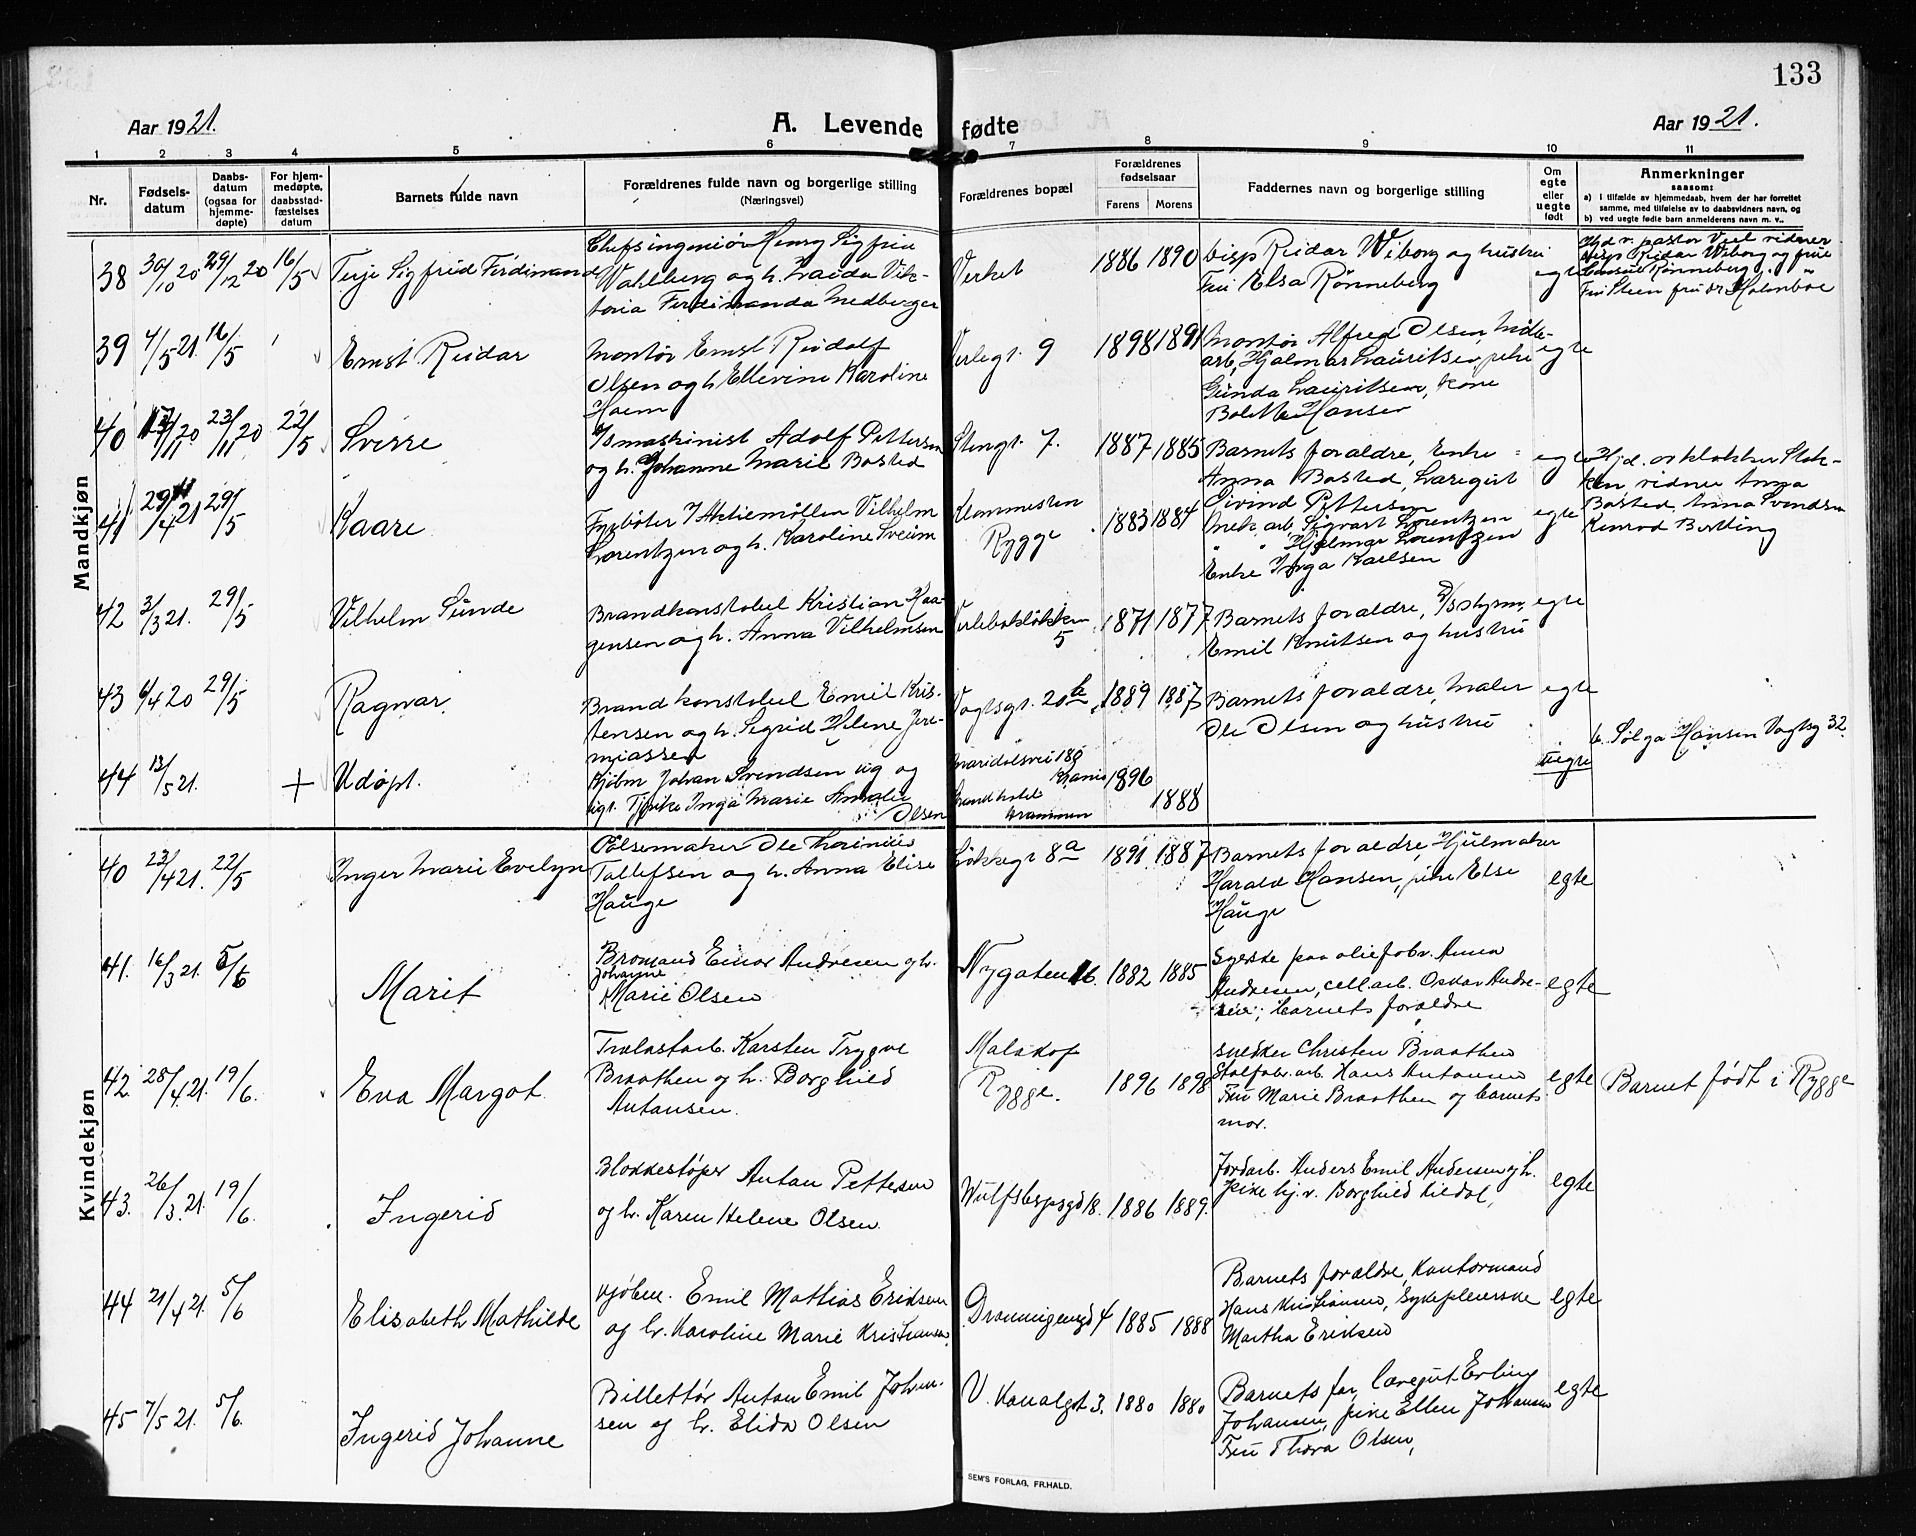 133
Aar 1921.
A. Levende fødte
Aar 1921.
1 2 3 4 5 6 7 8 9 10 11
Nr.
Fødsels-
datum
Daabs-
datum
(ogsaa for
hjemme-
døpte)
For hjem-
medøpte,
daabsstad-
fæstelses
datum
Barnets fulde navn
Forældrenes fulde navn og borgerlige stilling
(Næringsvei)
Forældrenes bopæl
Forældrenes
fødselsaar
Farens Morens
Faddernes navn og borgerlige stilling
Om
egte
eller
uegte
født
Anmerkninger
saasom:
a) i tilfælde av hjemmedaab, hvem der har forrettet
samme, med tilføielse av to daabsvidners navn, og
b) ved uegte fødte barn anmelderens navn m. v..
Mandkjøn
38 30/10 20 29/12 20 16/5 Terje Sigfrid Ferdinand
Chefsingeniør Henry Sigfrid
Wahlberg og h. Vik-
toria Ferdinanda Medberger
Verket 1886 1890
Disp Reidar Wiborg og hustru
Fru Elsa Rønneberg
egte
Hjd v. pastor vidner
Disp Reidar Wiborg og frue
Consul Rønneberg
Fru Steen fru dr Holmboe
39 4/5 21. 16/5 Ernst Reidar
Montør Ernst Rudolf
Olsen og h. Ellevine Karoline
Haem
Verlegt. 9 1898 1891
Montør Alfred Olsen,
arb. Hjalmar Lauritsen, pike
Gunda Lauritsen, kone
Bolette Hansen
egte
40 20 23/11 20 22/5 Sverre
Ismaskinist Adolf Pettersen
og h. Johanne Marie Basted
Stengt. 7. 1887 1885
Barnets forældre, Enke
Anna Basted, Læregut
Øivind Pettersen
egte
Hjd. av klokker Slok-
ken vidner Anna
Basted, Anna Svendsen
Konrad Berlling
41 29/4 21 29/5 Kaare
Fyrbøter / Aktiemøllen Vilhelm
Lorentzen og h. Karoline Sveim
Klommesten
Rygge. 1883 1884
Mek. arb. Sigvart Lorentzen
" " Hjalmar Lorentzen
Enke Inga Karlsen
egte
42 3/3 21. 29/5 Vilhelm Sunde
Brandkonstabel Kristian Haa-
gensen og h. Anna Vilhelmsen
Verlebakløkken
5 1871 1877
Barnets forældre, styrm.
Emil Knutsen og hustru
egte
43 6/4 20 29/5 Ragnar.
Brandkonstabel Emil Kris-
tensen og h. Sigrid Helene Jere-
miassen
Vogtsgt. 20 b 1889 1887
Barnets forældre, Maler
Ole Olsen og hustru
egte
44 13/5 21. + Udøpt.
Kjøbm Johan Svendsen ug og
ugt. Tjenike Inga Marie Amalie
Olsen
Maridalsvei 180
Krania
Drammen
1896 1888
uegte
b. Solga Hansen Vogtsg 32
Kvindekjøn
40 23/4 21. 22/5 Inger Marie Evelyn
Pølsemaker Ole Thorinius
Tallefsen og h. Anna Elise
Hauge
Løkkegt 8a 1891 1887
Barnets forældre, Hjulmaker
Harald Hansen, pike Else
Hauge
egte
41. 16/3 21. 5/6 Marit
Bromand Einar Andresen og h.
Johanne
Marie Olsen
Nygaten 16. 1882 1885
Syerske paa oliefabr. Anna
Andresen, cell. arb. Oskar Andre-
sen, barnets forældre
egte
42. 28/4 21. 19/6. Eva Margot
Trælastarb. Karsten Trygve
Braathen og h. Borghild
Antonsen.
Malakof
Rygge. 1896 1898
Snekker Christen Braathen
Stoffabr. arb. Hans Antonsen
Fru Marie Braathen og barnets
mor.
egte
Barnet født i Rygge
43. 26/3 21. 19/6. Ingerid
Blokkestøper Anton Pettersen
og h. Karen Helene Olsen.
Wulfsbergsgd 18. 1886 1889.
Jordarb. Anders Emil Andersen og h.
Pike hj. v. Borghild Kildal,
egte
44 21/4 21. 5/6 Elisabeth Mathilde
Kjøbm. Emil Mathias Eriksen
og h. Karoline Marie Kristiansen.
Dronningensgd 4 1885 1888
Barnets forældre, Kontormand
Hans Kristiansen, Sykepleierske
Martha Eriksen
egte
45 7/5 21. 5/6. Ingerid Johanne
Billettør Anton Emil Johan-
sen og h. Elida Olsen
V. Kanalgt 3. 1880 1880
Barnets far, læregut Erling
Johansen, pike Ellen Johansen
Fru Thora Olsen,
egte
SEM'S FORLAG, FR.HALD.